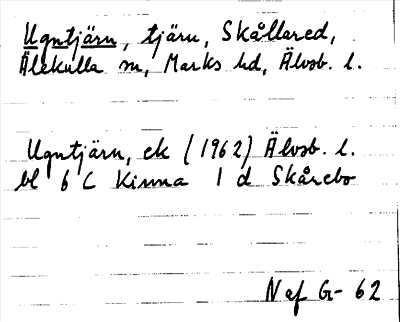 Ugntjärn, tjärn, Skållared,
Älekulla sn, Marks hd, Älvsb. l.
Ugntjärn, ek (1962) Älvsb. l.
bl 6 C Kinna 1 d Skårebo
Naf G- 62